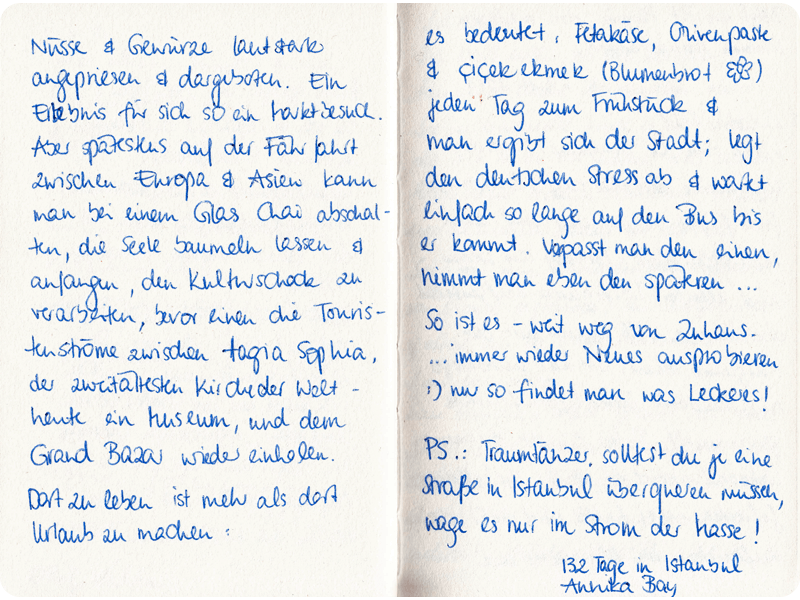 Nüsse & Gewürze lautstark
angepriesen & dargeboten. Ein
Erlebnis für sich so ein Marktbesuch.
Aber spätestens auf der Fährfahrt
zwischen Europa & Asien kann
man bei einem Glas Chai abschal-
ten, die Seele baumeln lassen &
anfangen, den Kulturschock zu
verarbeiten, bevor einen die Touris-
tenströme zwischen Hagia Sophia,
der zweitältesten Kirche der Welt -
heute ein Museum, und dem
Grand Bazar wieder einholen.
Dort zu leben ist mehr als dort
Urlaub zu machen:
es bedeutet, Fetakäse, Olivenpaste
& çiçek ekmek (Blumenbrot)
jeden Tag zum Frühstück &
man ergibt sich der Stadt; legt
den deutschen Stress ab & wartet
einfach so lange auf den Bus bis
er kommt. Verpasst man den einen,
nimmt man eben den späteren ...
So ist es - weit weg von Zuhaus.
...immer wieder Neues ausprobieren
:) nur so findet man was Leckeres!
PS.: Traumtänzer, solltest du je eine
Straße in Istanbul überqueren müssen,
wage es nur im Strom der Masse!
132 Tage in Istanbul
Annika Bay